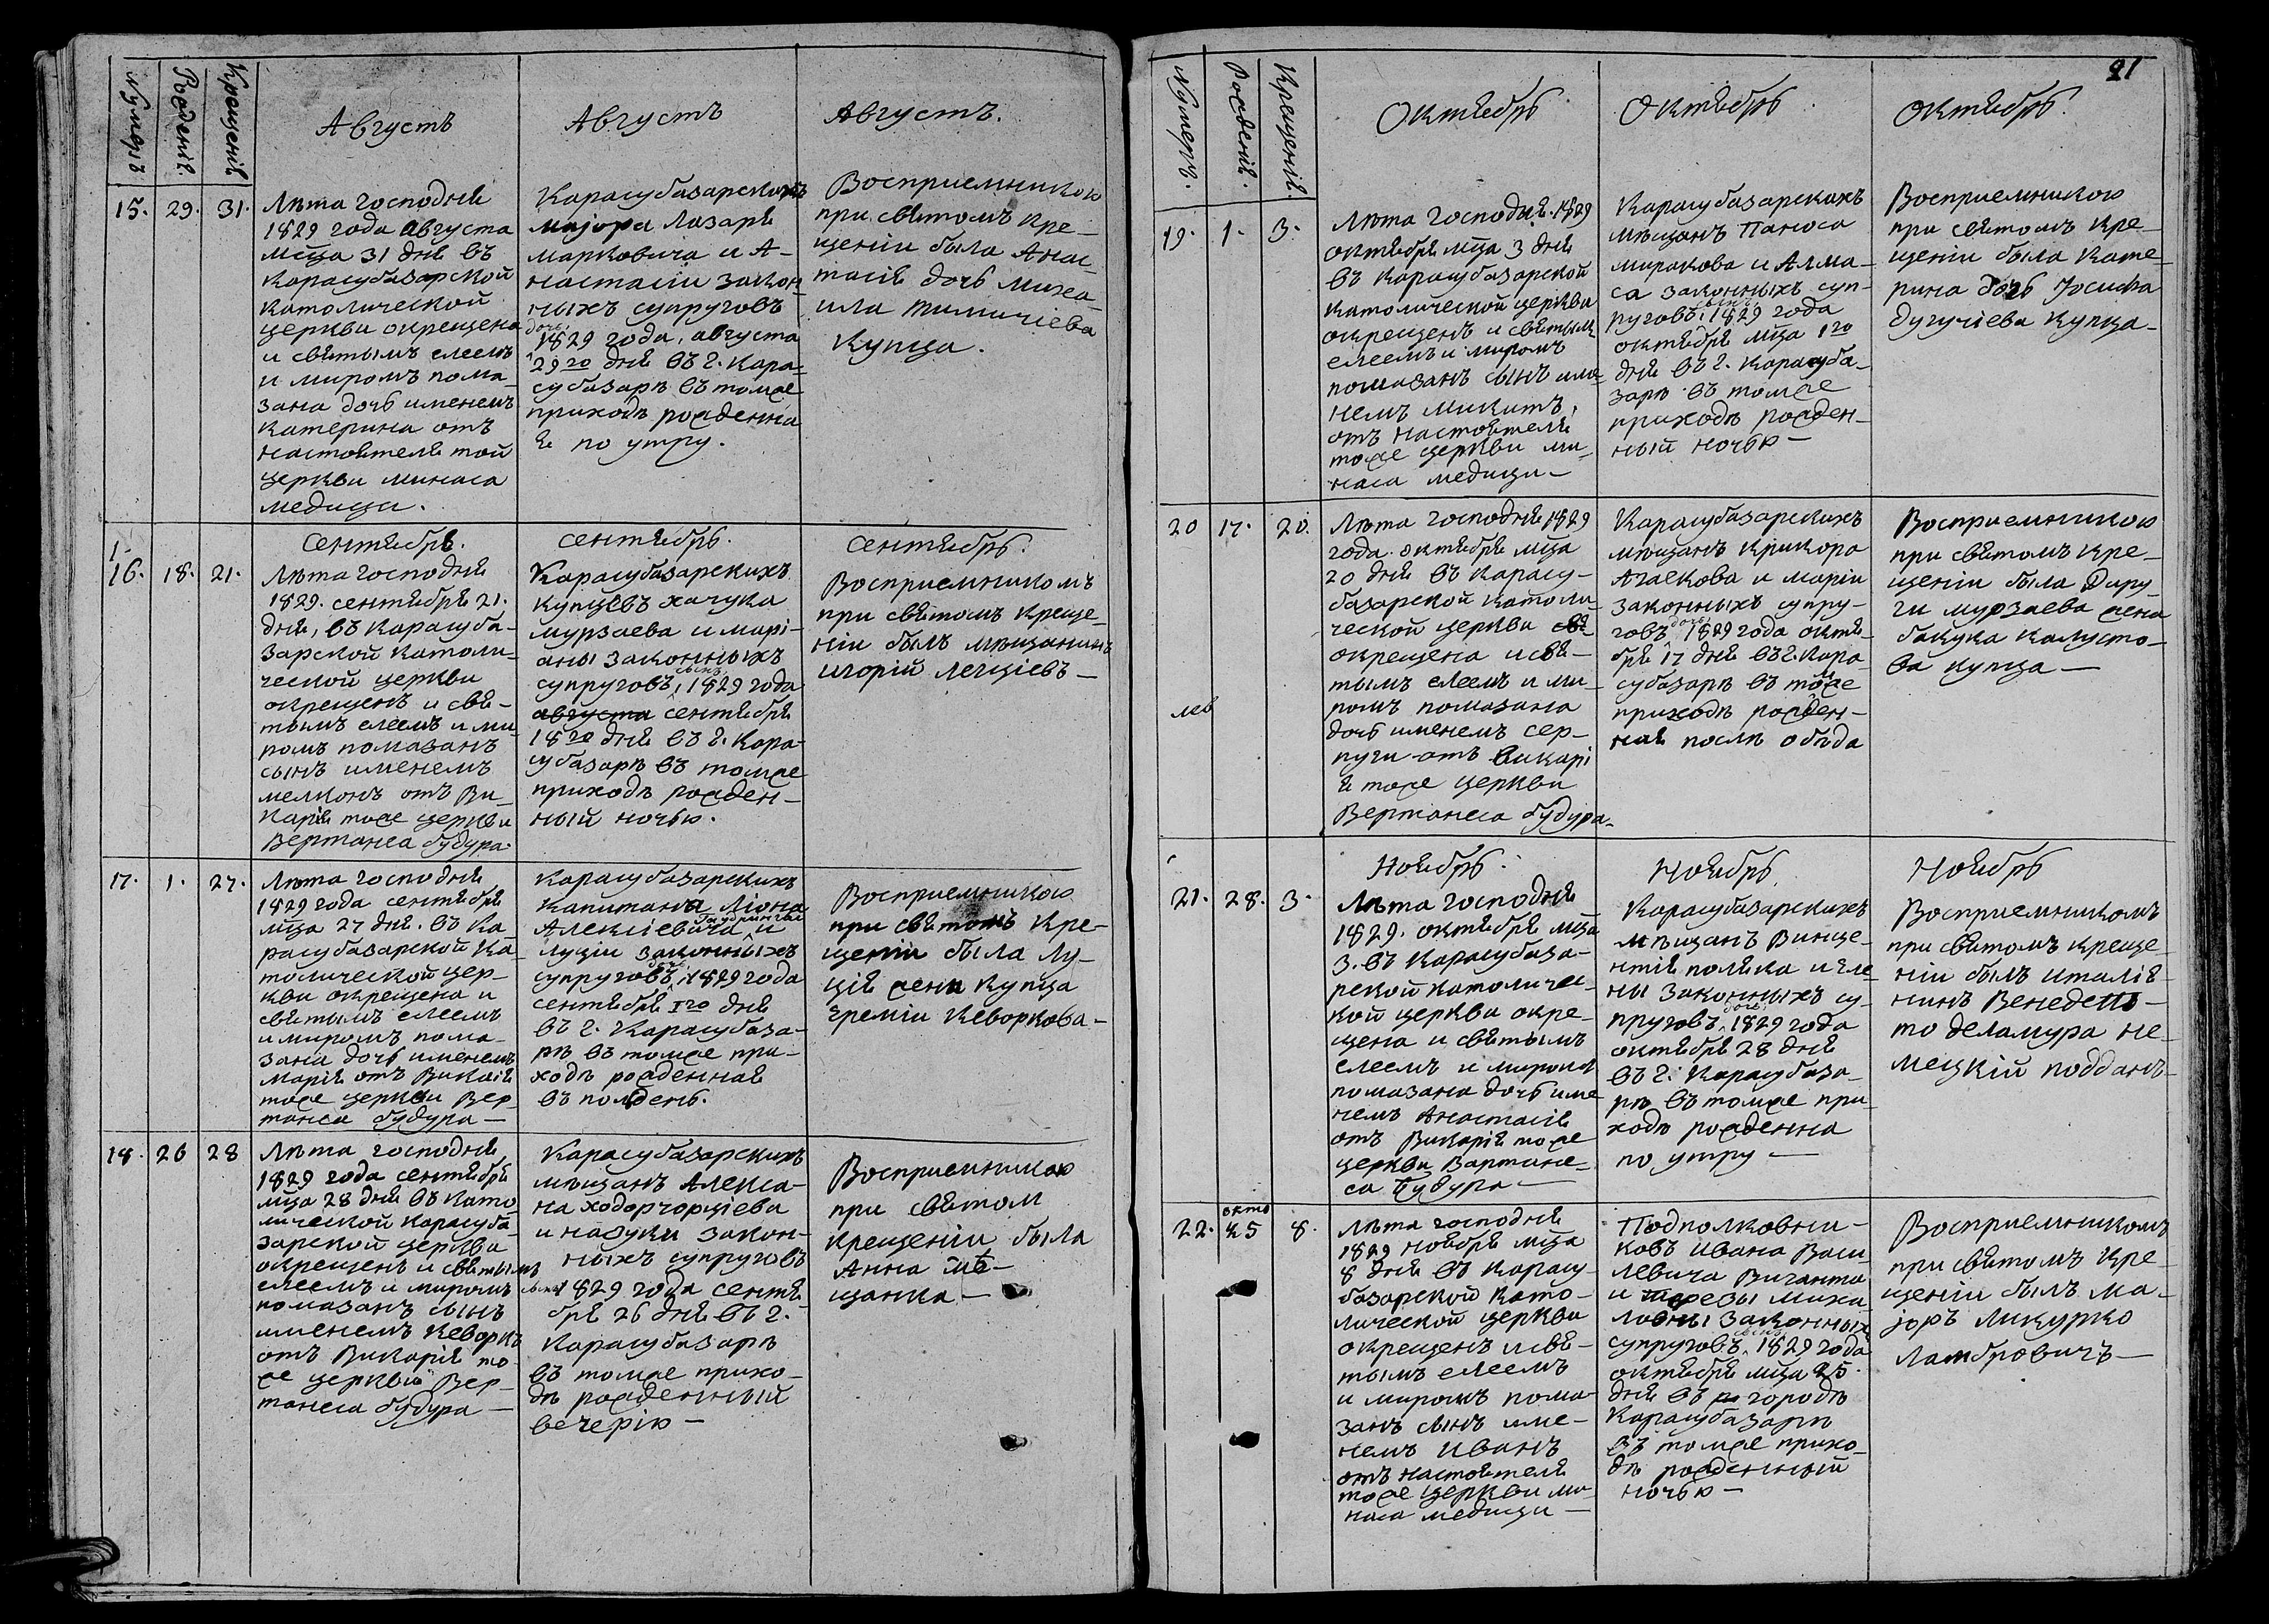 Нумеръ
Рожденіѣ.
Крещеніѣ
Августъ
Августъ
Августъ.
15. 29. 31.
Лѣта господнѣ
1829 года августа
мца 31 днѣ въ
Карасубазарской
католической
церкви окрещена
и свѣтымъ елеемъ
и миромъ пома-
зана дочь именемъ
Катерина отъ
настоѣтелѣ той
церкви минаса
медици.
Карасубазарскихъ
маjора Лазарѣ
марковича и А-
настасіи закон
ныхъ супруговъ
дочь
1829 года, августа
29го днѣ въ г. Кара-
субазарѣ въ томже
приходѣ рожденна
ѣ по утру.
Восприемникою
при свѣтомъ кре-
щеніи была Анас-
тасіѣ дочь миха
ила тимичіева
купца.
Сентѣбрь.
Сентѣбрь.
Сентѣбрь.
16. 18. 21.
Лѣта господнѣ
1829. сентѣбрѣ 21.
днѣ, въ Карасуба-
зарской католи-
ческой церкви
окрещенъ и свѣ-
тымъ елеемъ и ми
ромъ помазанъ
сынъ именемъ
мелконъ отъ Ви-
карiѣ тоже церкви
Вертанеса будура.
Карасубазарскихъ
купцѣвъ хачука
мурзаева и марі-
аны законныхъ
сынъ
супруговъ, 1829 года
августа сентѣбрѣ
18го днѣ въ г. Кара-
субазарѣ въ томже
приходѣ рожден-
ный ночью.
Восприемникомъ
при свѣтомъ креще-
ніи былъ мѣщанинъ
игорій легціевъ-
17. 1. 27.
Лѣта господнѣ
1829 года сентѣбрѣ
мца 27 днѣ. въ Ка
расубазарской ка-
толической цер-
кви окрещена и
свѣтымъ елеемъ
и миромъ пома-
зана дочь именемъ
Маріѣ отъ Викаіѣ
тоже церкви Вер-
танеса будура-
Карасубазарскихъ
капитана Ліона
Алексіевича и
луціи законныхъ
дочь
супруговъ, 1829 года
сентѣбрѣ 1го днѣ
въ г. Карасубаза-
рѣ въ томже при-
ходѣ рожденнаѣ
въ полдень.
Восприемникою
при свѣтомъ кре-
щеніи была лу-
ціѣ жена купца
ереміи кеворкова-
18. 26 28
Лѣта господнѣ
1829 года сентѣбрѣ
мца 28 днѣ въ като
лической карасуба
зарской церкви
окрещенъ и свѣтымъ
елеемъ и миромъ
помазанъ сынъ
именемъ кеворкъ
отъ Викаріѣ то-
же церкви Вер-
танеса будура-
Карасубазарскихъ
мѣщанъ Алекса-
на ходорчорціева
и назуки закон-
ныхъ супруговъ
сынъ 1829 года сентѣ
брѣ 26 днѣ въ г.
Карасубазарѣ
въ томже прихо-
дѣ рожденный
вечерію-
Восприемникою
при свѣтом
крещеніи была
Анна мѣ-
щанка-
21
Нумеръ.
Рожденіѣ.
Крещеніѣ.
Октѣбрь
Октѣбрь
октѣбрь.
19. 1. 3.
Лѣта господнѣ. 1829
октѣбрѣ мца 3 днѣ
въ Карасубазарской
католической церкви
окрещенъ и свѣтымъ
елеемъ и миромъ
помазанъ сынъ име-
немъ микитъ,
отъ настоѣтелѣ
тоже церкви ми-
наса медици-
Карасубазарскихъ
мѣщанъ Паноса
миракова и Алма-
са законныхъ суп-
сынъ
руговъ, 1829 года
октѣбрѣ мца 1го
днѣ въ г. Карасуба-
зарѣ въ томже
приходѣ рожден-
ный ночью-
Восприемникою
при свѣтомъ кре-
щеніи была кате-
рина дочь Іосифа
дугучіева купца-
20 17. 20.
Лѣта господнѣ 1829
года. октѣбрѣ мца
20 днѣ въ карасу-
базарской католи-
ческой церкви
окрещена и свѣ-
тымъ елеемъ и ми-
ромъ помазана
дочь именемъ сер-
пуги отъ викарі
ѣ тоже церкви
Вертанеса будура-
Карасубазарскихъ
мѣщанъ крикора
Агаекова и маріи
законныхъ супру-
дочь
говъ, 1829 года октѣ-
брѣ 17 днѣ въ г. Кара
субазарѣ въ томже
приходѣ рожден-
наѣ послѣ обѣда
Восприемникою
при свѣтомъ кре-
щеніи была Вару-
ги мурзаева жена
бакука калусто-
ва купца-
Ноѣбрь.
Ноѣбрь.
Ноѣбрь
21. 28. 3.
Лѣта господнѣ
1829. октѣбрѣ мца
3. въ Карасубаза-
рской католичес-
кой церкви окре-
щена и свѣтымъ
елеемъ и миромъ
помазана дочь име
немъ Анастасіѣ
отъ Викаріѣ тоже
церкви Вартане-
са будура-
Карасубазарскихъ
мѣщанъ Винце-
нтіѣ полѣка и еле-
ны законныхъ су-
дочь
пруговъ, 1829 года
октѣбрѣ 28 днѣ
въ г. Карасубаза-
рѣ въ томже при-
ходѣ рожденна
по утру-
Восприемникомъ
при свѣтомъ креще-
ніи былъ италіѣ
нинъ Венедет-
то деламура не-
мецкій подданъ-
окто
22. 25 8.
Лѣта господнѣ
1829 ноѣбрѣ мца
8 днѣ въ Карасу-
базарской като-
лической церкви
окрещенъ и свѣ-
тымъ елеемъ
и миромъ пома-
занъ сынъ име-
немъ Иванъ
отъ настоѣтелѣ
тоже церкви ми-
наса медици-
Подполковни-
ковъ Ивана Васи
левича Виганта
и терезы миха
ловны законныхъ
сынъ
супруговъ, 1829 года
октѣбрѣ мца 25.
днѣ въ городѣ
Карасубазарѣ
въ томже прихо-
дѣ рожденный
ночью-
Восприемникомъ
при свѣтомъ кре-
щеніи былъ ма-
jоръ ликурко
ламбровичъ-